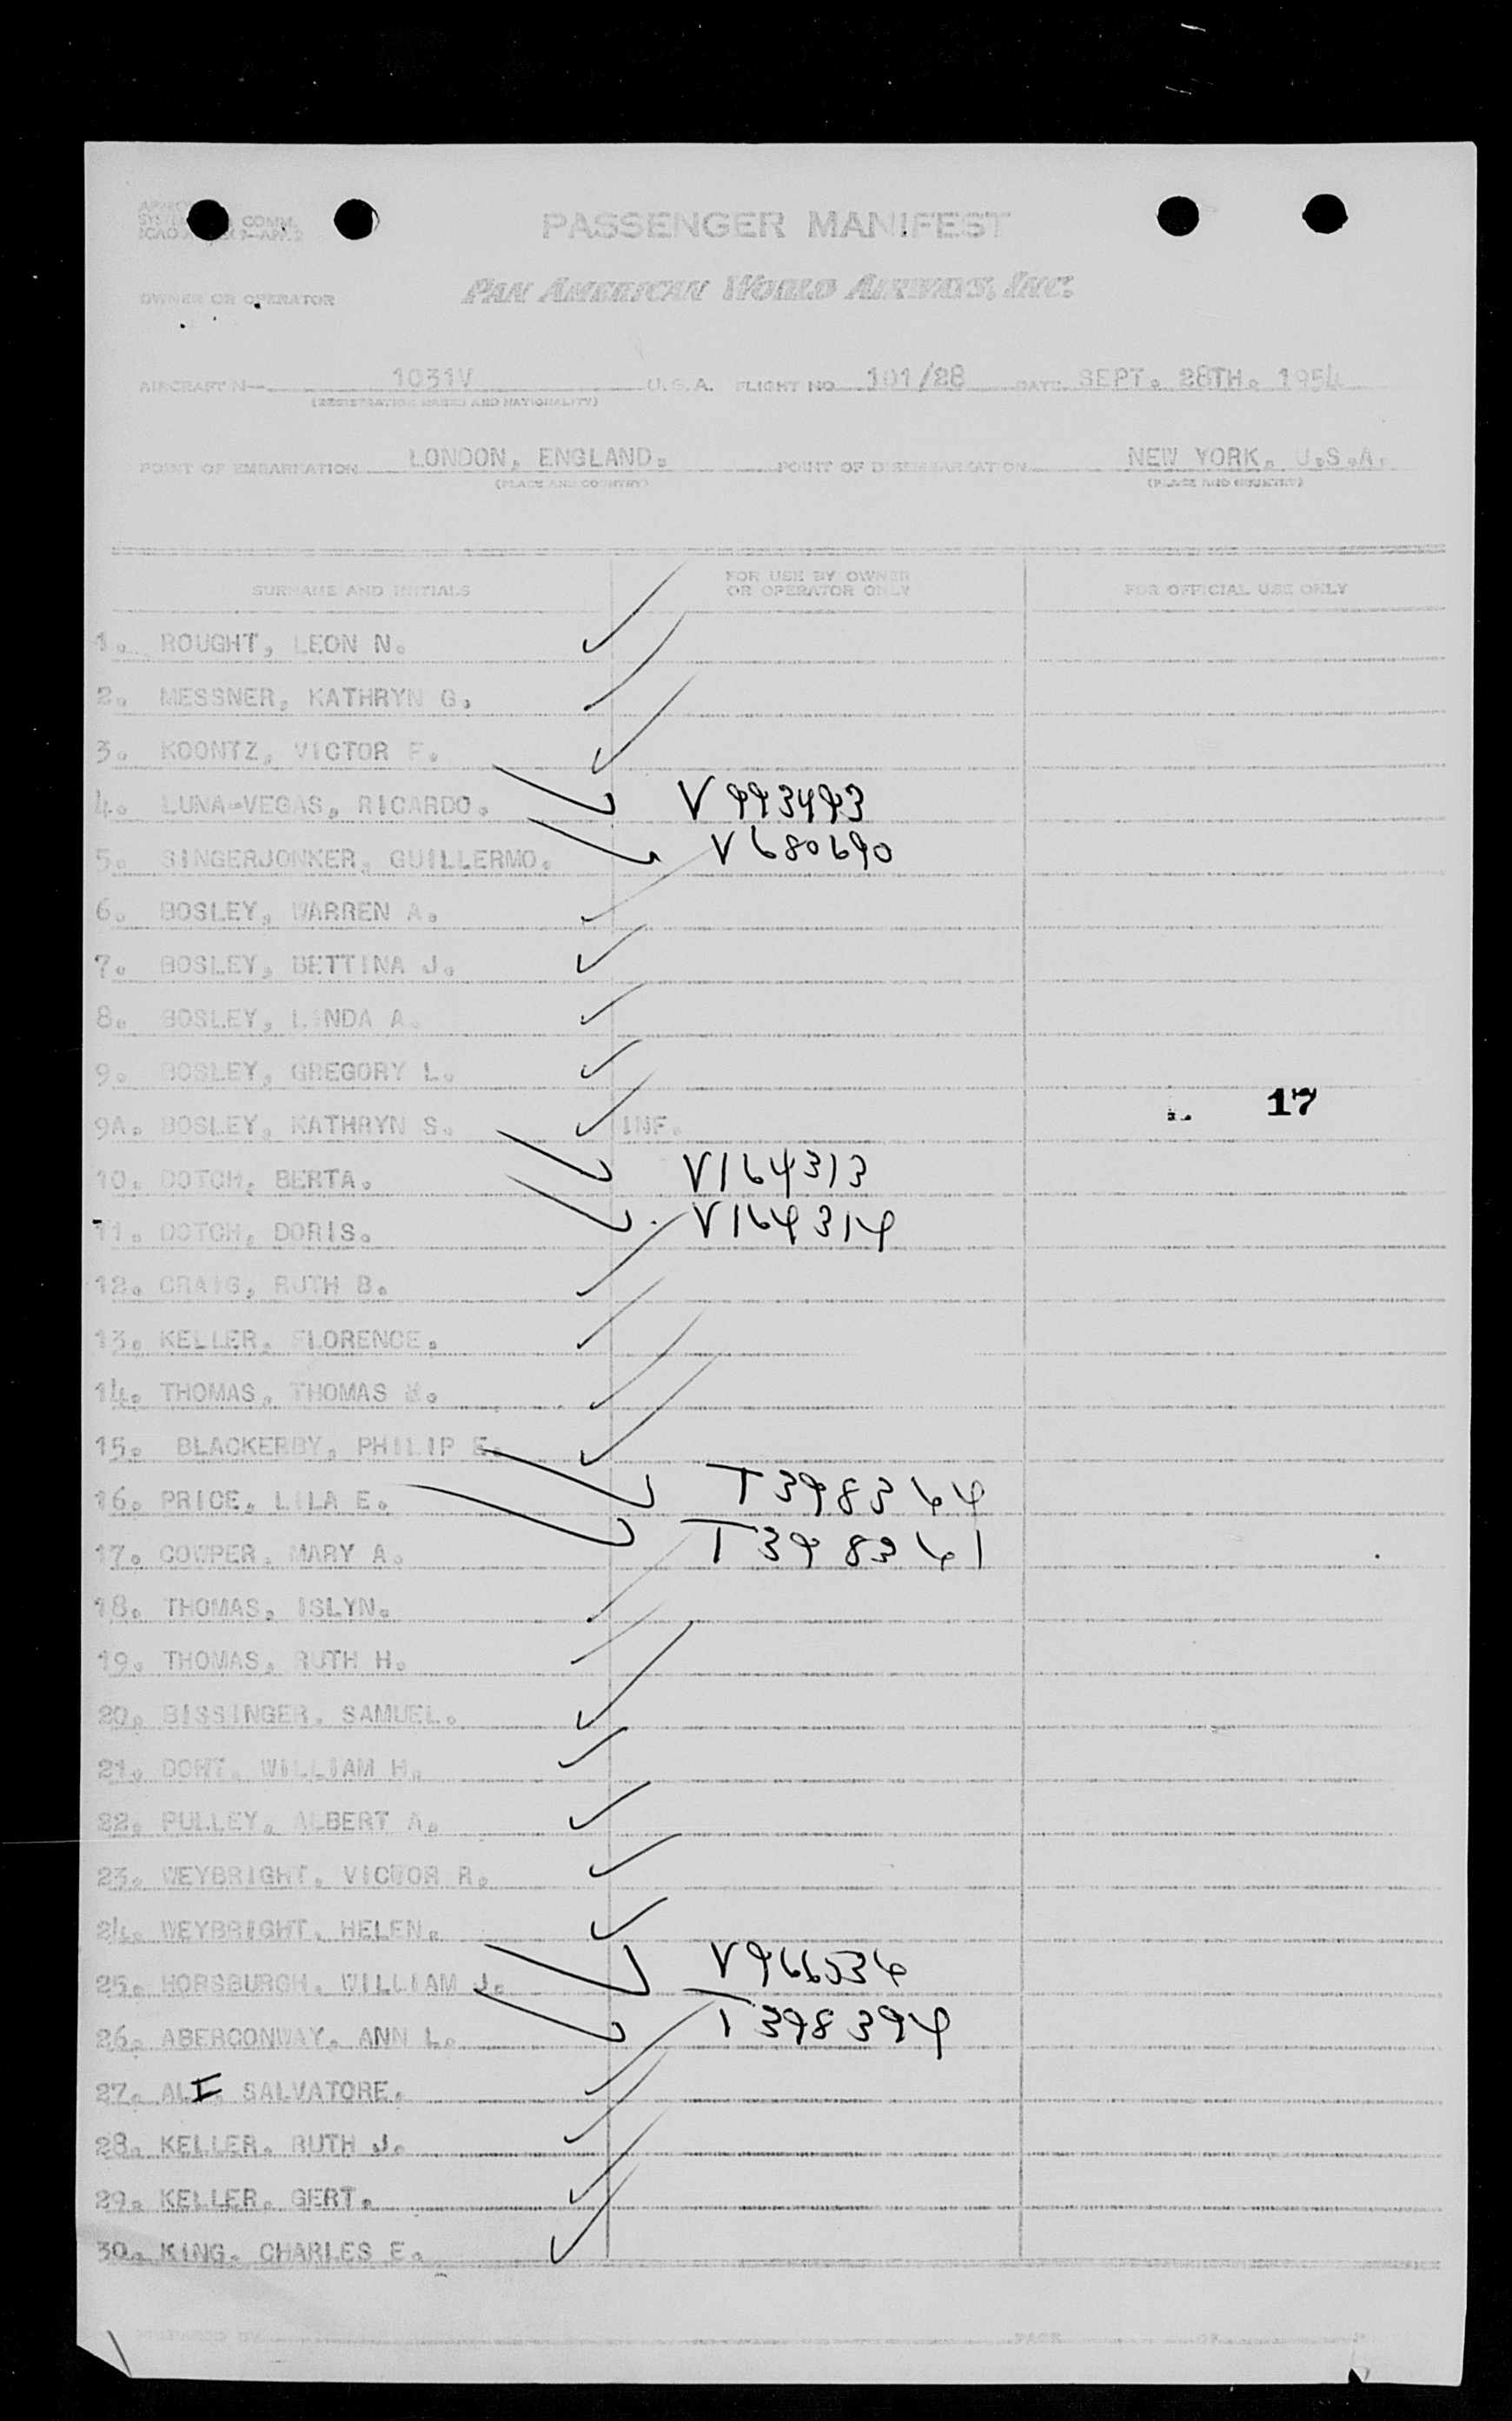 COMM.
PASSENGER MANIFEST
OWNER OR OPERATOR
PAN AMERICAN WORLD AIRWAYS, INC.
AIRCRAFT N— 1031V U.S.A. FLIGHT NO. 101/28 DATE SEPT. 28TH. 1954
(REGISTRATION MARKS AND NATIONALITY)
POINT OF EMBARKATION LONDON, ENGLAND. POINT OF DISEMBARKATION NEW YORK, U.S.A.
(PLACE AND COUNTRY) (PLACE AND COUNTRY)
SURNAME AND INITIALS FOR USE BY OWNER OR OPERATOR ONLY FOR OFFICIAL USE ONLY
1. ROUGHT, LEON N.
2. MESSNER, KATHRYN G.
3. KOONTZ, VICTOR F.
4. LUNA-VEGAS, RICARDO. V993493
5. SINGERJONKER, GUILLERMO. V680690
6. BOSLEY, WARREN A.
7. BOSLEY, BETTINA J.
8. BOSLEY, LINDA A.
9. BOSLEY, GREGORY L.
17
9A. BOSLEY, KATHRYN S. INF.
10. DOTCH, BERTA. V164313
11. DOTCH, DORIS. V164314
12. CRAIG, RUTH B.
13. KELLER, FLORENCE.
14. THOMAS, THOMAS
15. BLACKERBY, PHILIP E.
16. PRICE, LILA E. T398364
17. COWPER, MARY A. T398361
18. THOMAS, ISLYN.
19. THOMAS, RUTH H.
20. BISSINGER, SAMUEL.
21. WILLIAM H.
22. PULLEY, ALBERT A.
23. WEYBRIGHT, VICTOR R.
24. WEYBRIGHT, HELEN.
25. HORSBURGH, WILLIAM J. V966536
26. ABERCONWAY, ANN L. T398394
27. ALI, SALVATORE.
28. KELLER, RUTH J.
29. KELLER, GERT.
30. KING, CHARLES E.
PREPARED BY PAGE OF